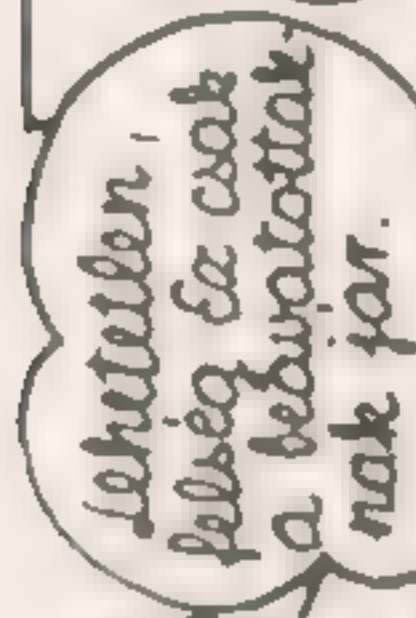 Lehetetlen,
felség Ez csak
a beavatottak-
nak jár.